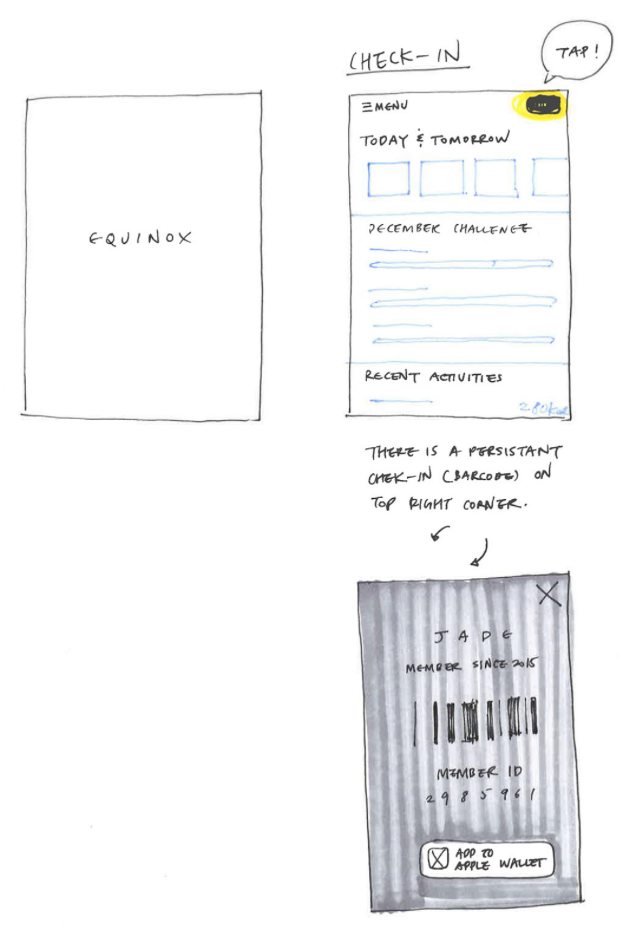 CHECK-IN
TAP!
EQUINOX
MENU
TODAY & TOMORROW
DECEMBER CHALLENGE
RECENT ACTIVITIES
THERE IS A PERSISTANT
CHEK-IN (BARCODE) ON
TOP RIGHT CORNER.
JADE
MEMBER SINCE 2015
MEMBER ID
2985961
ADD TO
APPLE WALLET